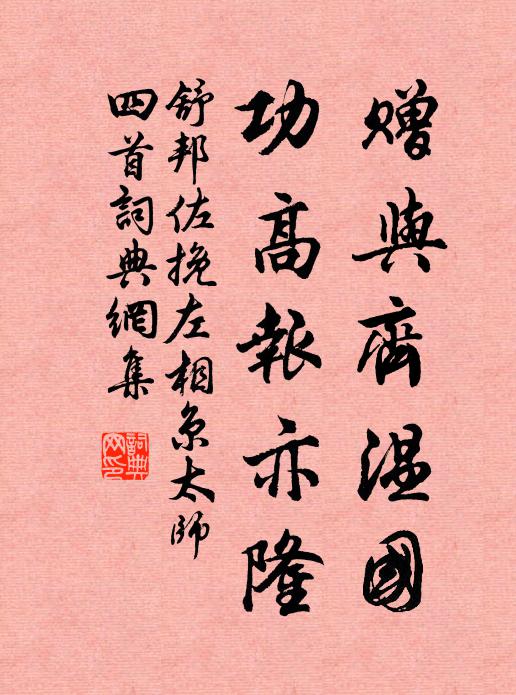 赠與齊温國
功高報亦隆
舒邦佐挽左相京太師
四首詞典網集
詞典网印